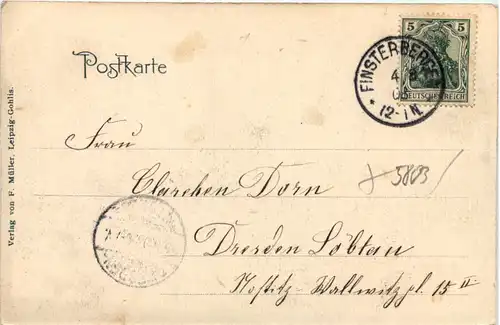 Postkarte
5 5
DEUTSCHES REICH
FINSTERBERGEN
4
12-1N.
Verlag von F. Müller, Leipzig-Gohlis.
Frau
Clärchen Dorn
5803
Dresden Löbtau
Nostitz-Wallwitzpl. 15 II